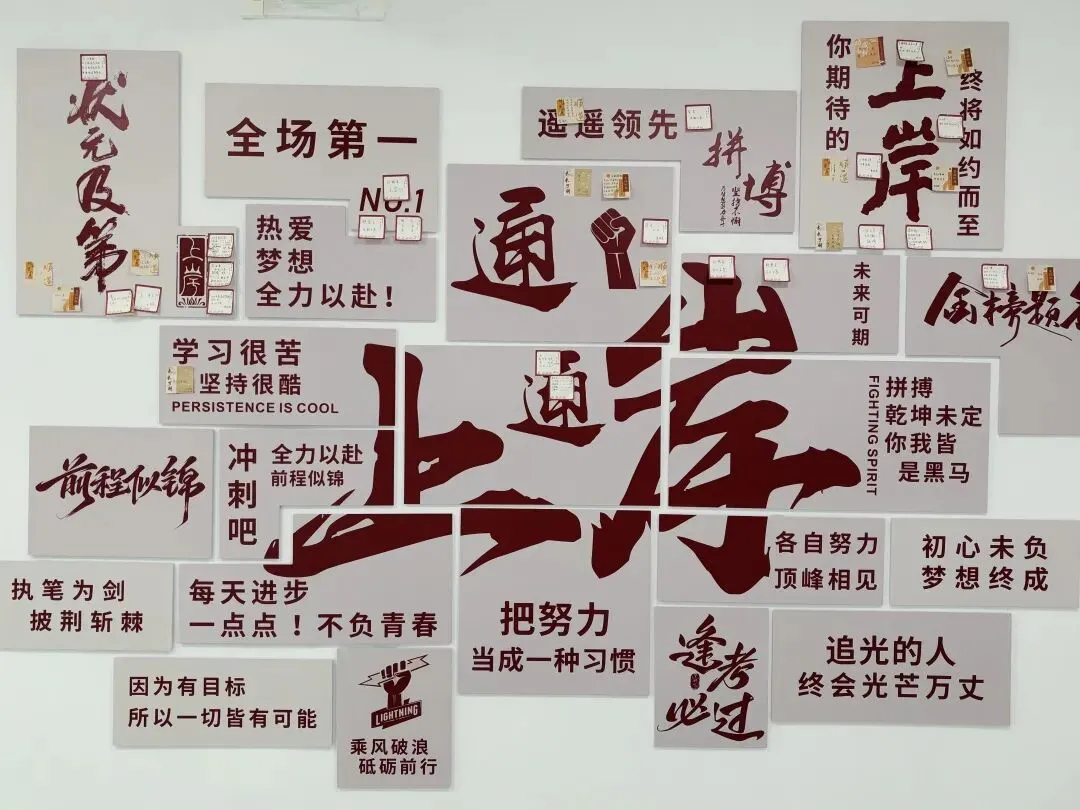 状元及第
上岸
全场第一
No.1
热爱
梦想
全力以赴!
遥遥领先
拼博
坚持不懈
你期待的
上岸
终将如约而至
通
通
上岸
未来可期
金榜题名
学习很苦
坚持很酷
PERSISTENCE IS COOL
拼搏
乾坤未定
你我皆
是黑马
FIGHTING SPIRIT
前程似锦
冲刺吧
全力以赴
前程似锦
各自努力
顶峰相见
初心未负
梦想终成
执笔为剑
披荆斩棘
每天进步
一点点!不负青春
把努力
当成一种习惯
逢考
必过
追光的人
终会光芒万丈
因为有目标
所以一切皆有可能
LIGHTNING
乘风破浪
砥砺前行